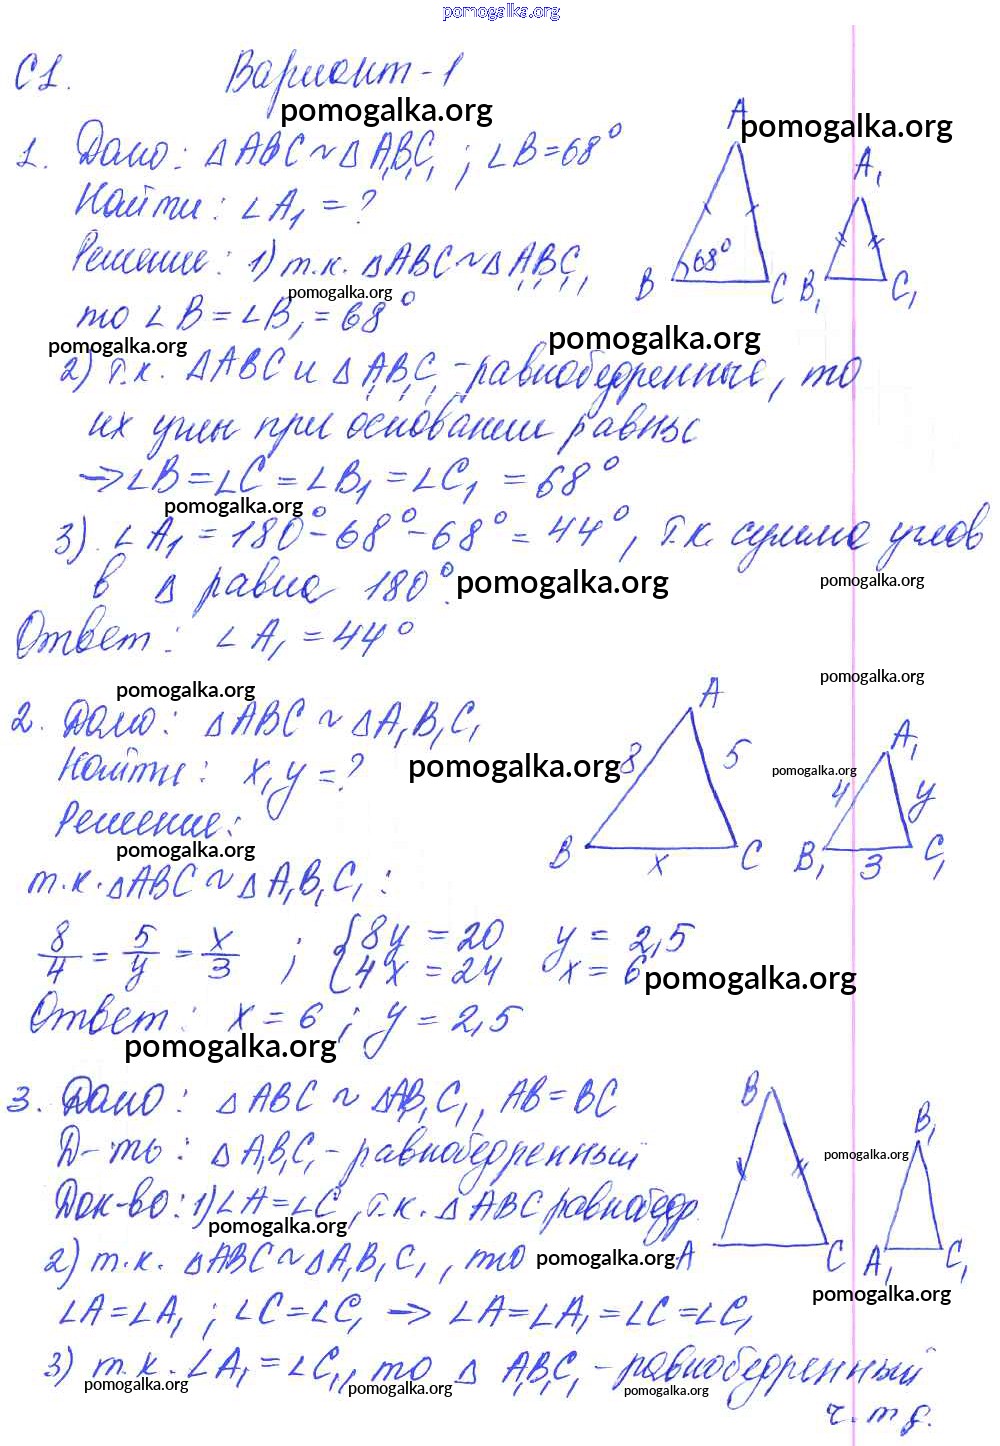 pomogalka.org
С1. Вариант-1
pomogalka.org
1. Дано: ΔABC ~ ΔA₁B₁C₁; ∠B=68°
A
pomogalka.org
A₁
Найти: ∠A₁ = ?
Решение: 1) т.к. ΔABC ~ ΔA₁B₁C₁,
68°
B C B₁ C₁
pomogalka.org
то ∠B = ∠B₁ = 68°
pomogalka.org
pomogalka.org
2) т.к. ΔABC и ΔA₁B₁C₁ - равнобедренные, то
их углы при основании равны
→ ∠B = ∠C = ∠B₁ = ∠C₁ = 68°
pomogalka.org
3). ∠A₁ = 180° - 68° - 68° = 44°, т.к. сумма углов
в Δ равна 180°.
pomogalka.org
pomogalka.org
Ответ: ∠A₁ = 44°
pomogalka.org
pomogalka.org
2. Дано: ΔABC ~ ΔA₁B₁C₁
A
A₁
Найти: x, y = ?
pomogalka.org
8 5
pomogalka.org
4 y
Решение:
pomogalka.org
B x C B₁ 3 C₁
т.к. ΔABC ~ ΔA₁B₁C₁:
8/4 = 5/y = x/3 ; { 8y = 20 y = 2,5
{ 4x = 24 x = 6
pomogalka.org
Ответ: x = 6; y = 2,5
pomogalka.org
3. Дано: ΔABC ~ ΔA₁B₁C₁, AB = BC
B
B₁
Д-ть: ΔA₁B₁C₁ - равнобедренный
pomogalka.org
Док-во: 1) ∠A = ∠C, т.к. ΔABC равнобедр.
pomogalka.org
2) т.к. ΔABC ~ ΔA₁B₁C₁, то
pomogalka.org
A C A₁ C₁
pomogalka.org
∠A = ∠A₁; ∠C = ∠C₁ → ∠A = ∠A₁ = ∠C = ∠C₁
3) т.к. ∠A₁ = ∠C₁, то Δ A₁B₁C₁ - равнобедренный
pomogalka.org
pomogalka.org
pomogalka.org
ч.т.д.